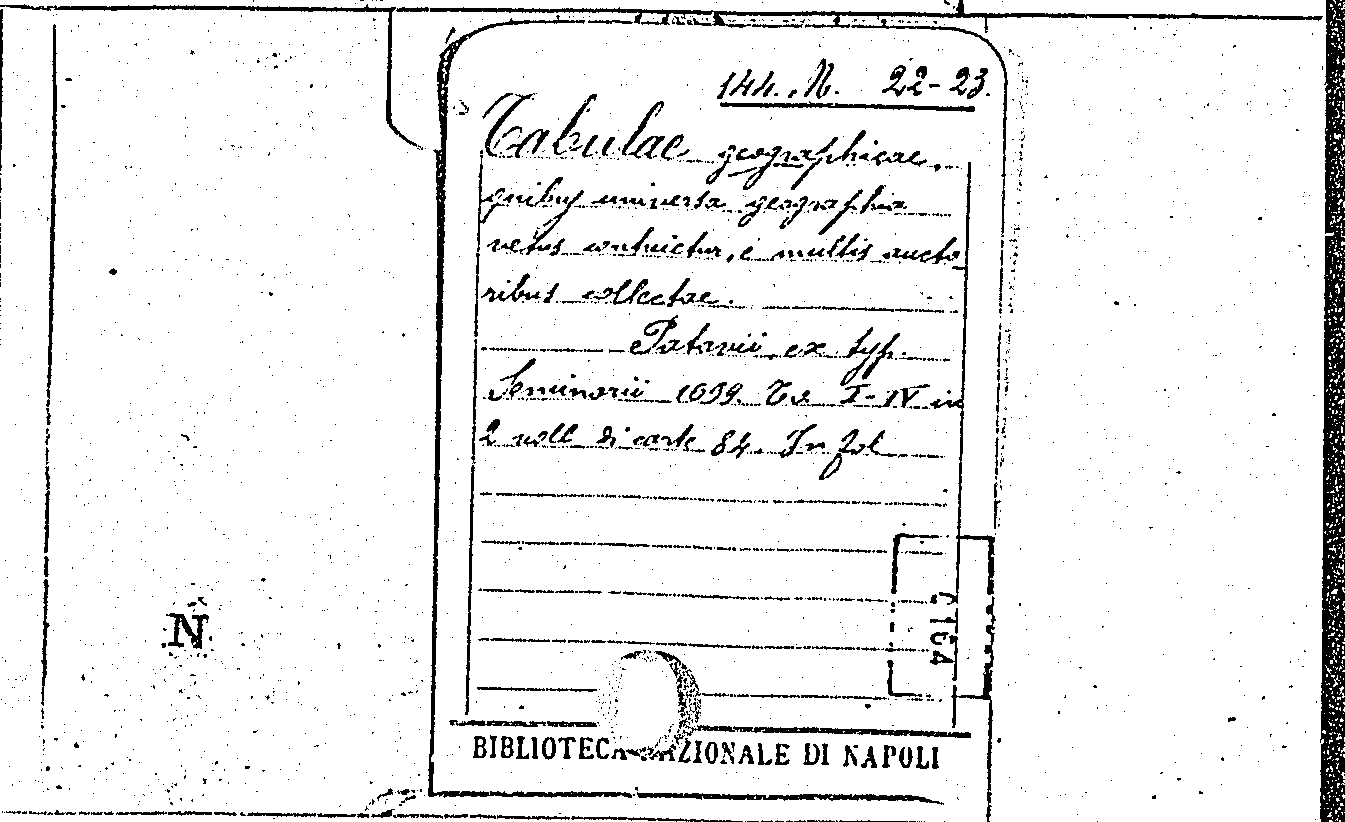 144. N. 22-23.
Tabulae geographicae,
quibus universa geographia
vetus continetur, e multis aucto
ribus collectae.
Patavii ex typ.
Seminarii 1699. To. I-IV in
2 voll. di carte 84. In fol
N
C 164
BIBLIOTECA NAZIONALE DI NAPOLI